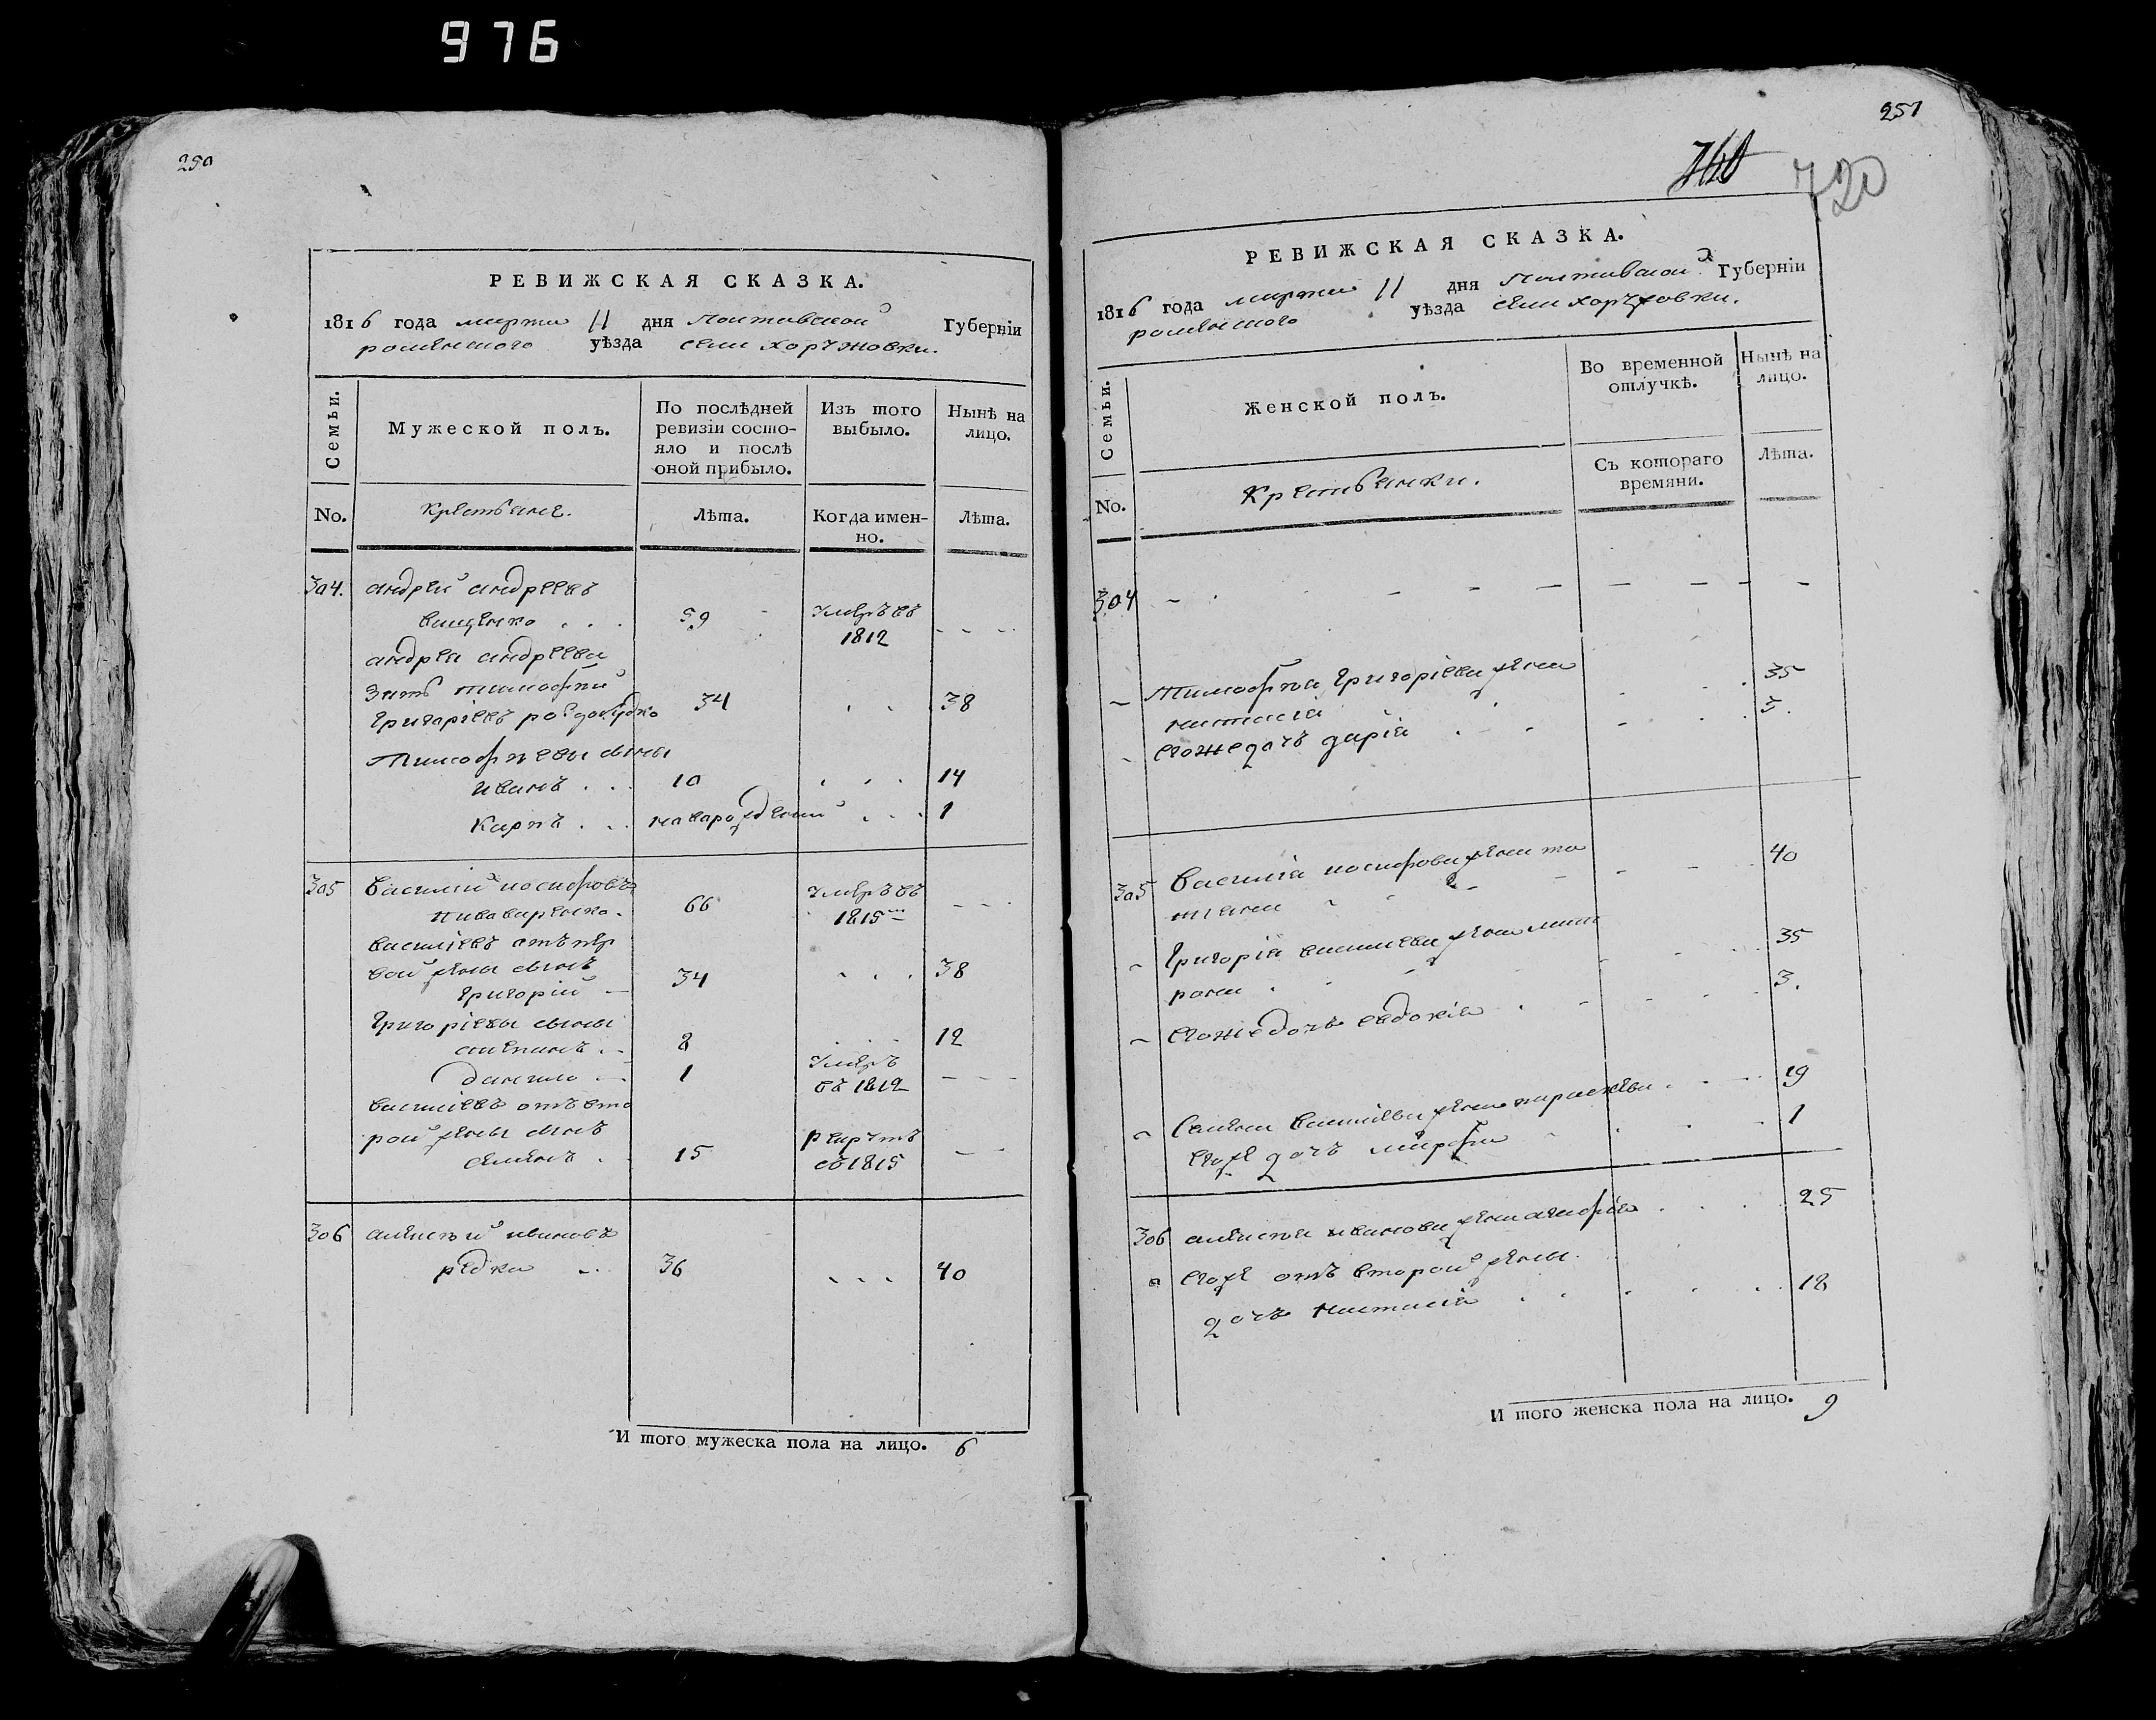 976
250
РЕВИЖСКАЯ СКАЗКА.
1816 года марта 11 дня Полтавской Губерніи
роменского уѣзда села хоружовки.
Семьи.
Мужеской полъ.
По послѣдней ревизіи состояло и послѣ оной прибыло.
Изъ того выбыло.
Нынѣ на лицо.
No.
Крестьяне.
Лѣта.
Когда именно.
Лѣта.
304. андрей андреевъ
ващенко . . . 59 умеръ въ 1812 - - -
андрея андреева
зять тимофей
григоріевъ 34 . . 38
Тимофеевы сыны
иванъ . . . 10 . . . 14
Карпъ . . . новорожденый . . . 1
305 Василій иосифовъ
пивоваренко . 66 умеръ въ 1815 - - -
василіевъ отъ пер
вой жены сынъ
григорій - 34 . . . 38
григоріевы сыны
степанъ . - 8 . . . 12
данило - 1 умеръ въ 1812 - - -
василіевъ отъ вто
рой жены сынъ
семенъ . 15 рекрутъ въ 1815 - -
306 алексей ивановъ
редка . . 36 . . . 40
И того мужеска пола на лицо. 6
251
720
РЕВИЖСКАЯ СКАЗКА.
1816 года марта 11 дня Полтавской Губерніи
роменского уѣзда села хоружовки.
Семьи.
Женской полъ.
Во временной отлучкѣ.
Нынѣ на лицо.
No.
Крестьянки.
Съ котораго времяни.
Лѣта.
304 - - - - - - - -
Тимофея григоріева жена
настасія 35
его же дочь дарія 5.
305 Василія иосифова жена та
тіана 40
григорія василиева жена мат
рона 35
его же дочь евдокія 3.
Семена василіева жена параскева 19
его же дочь марфа 1
306 алексея иванова жена агафія 25
его же отъ второй жены
дочь настасія 18
И того женска пола на лицо. 9